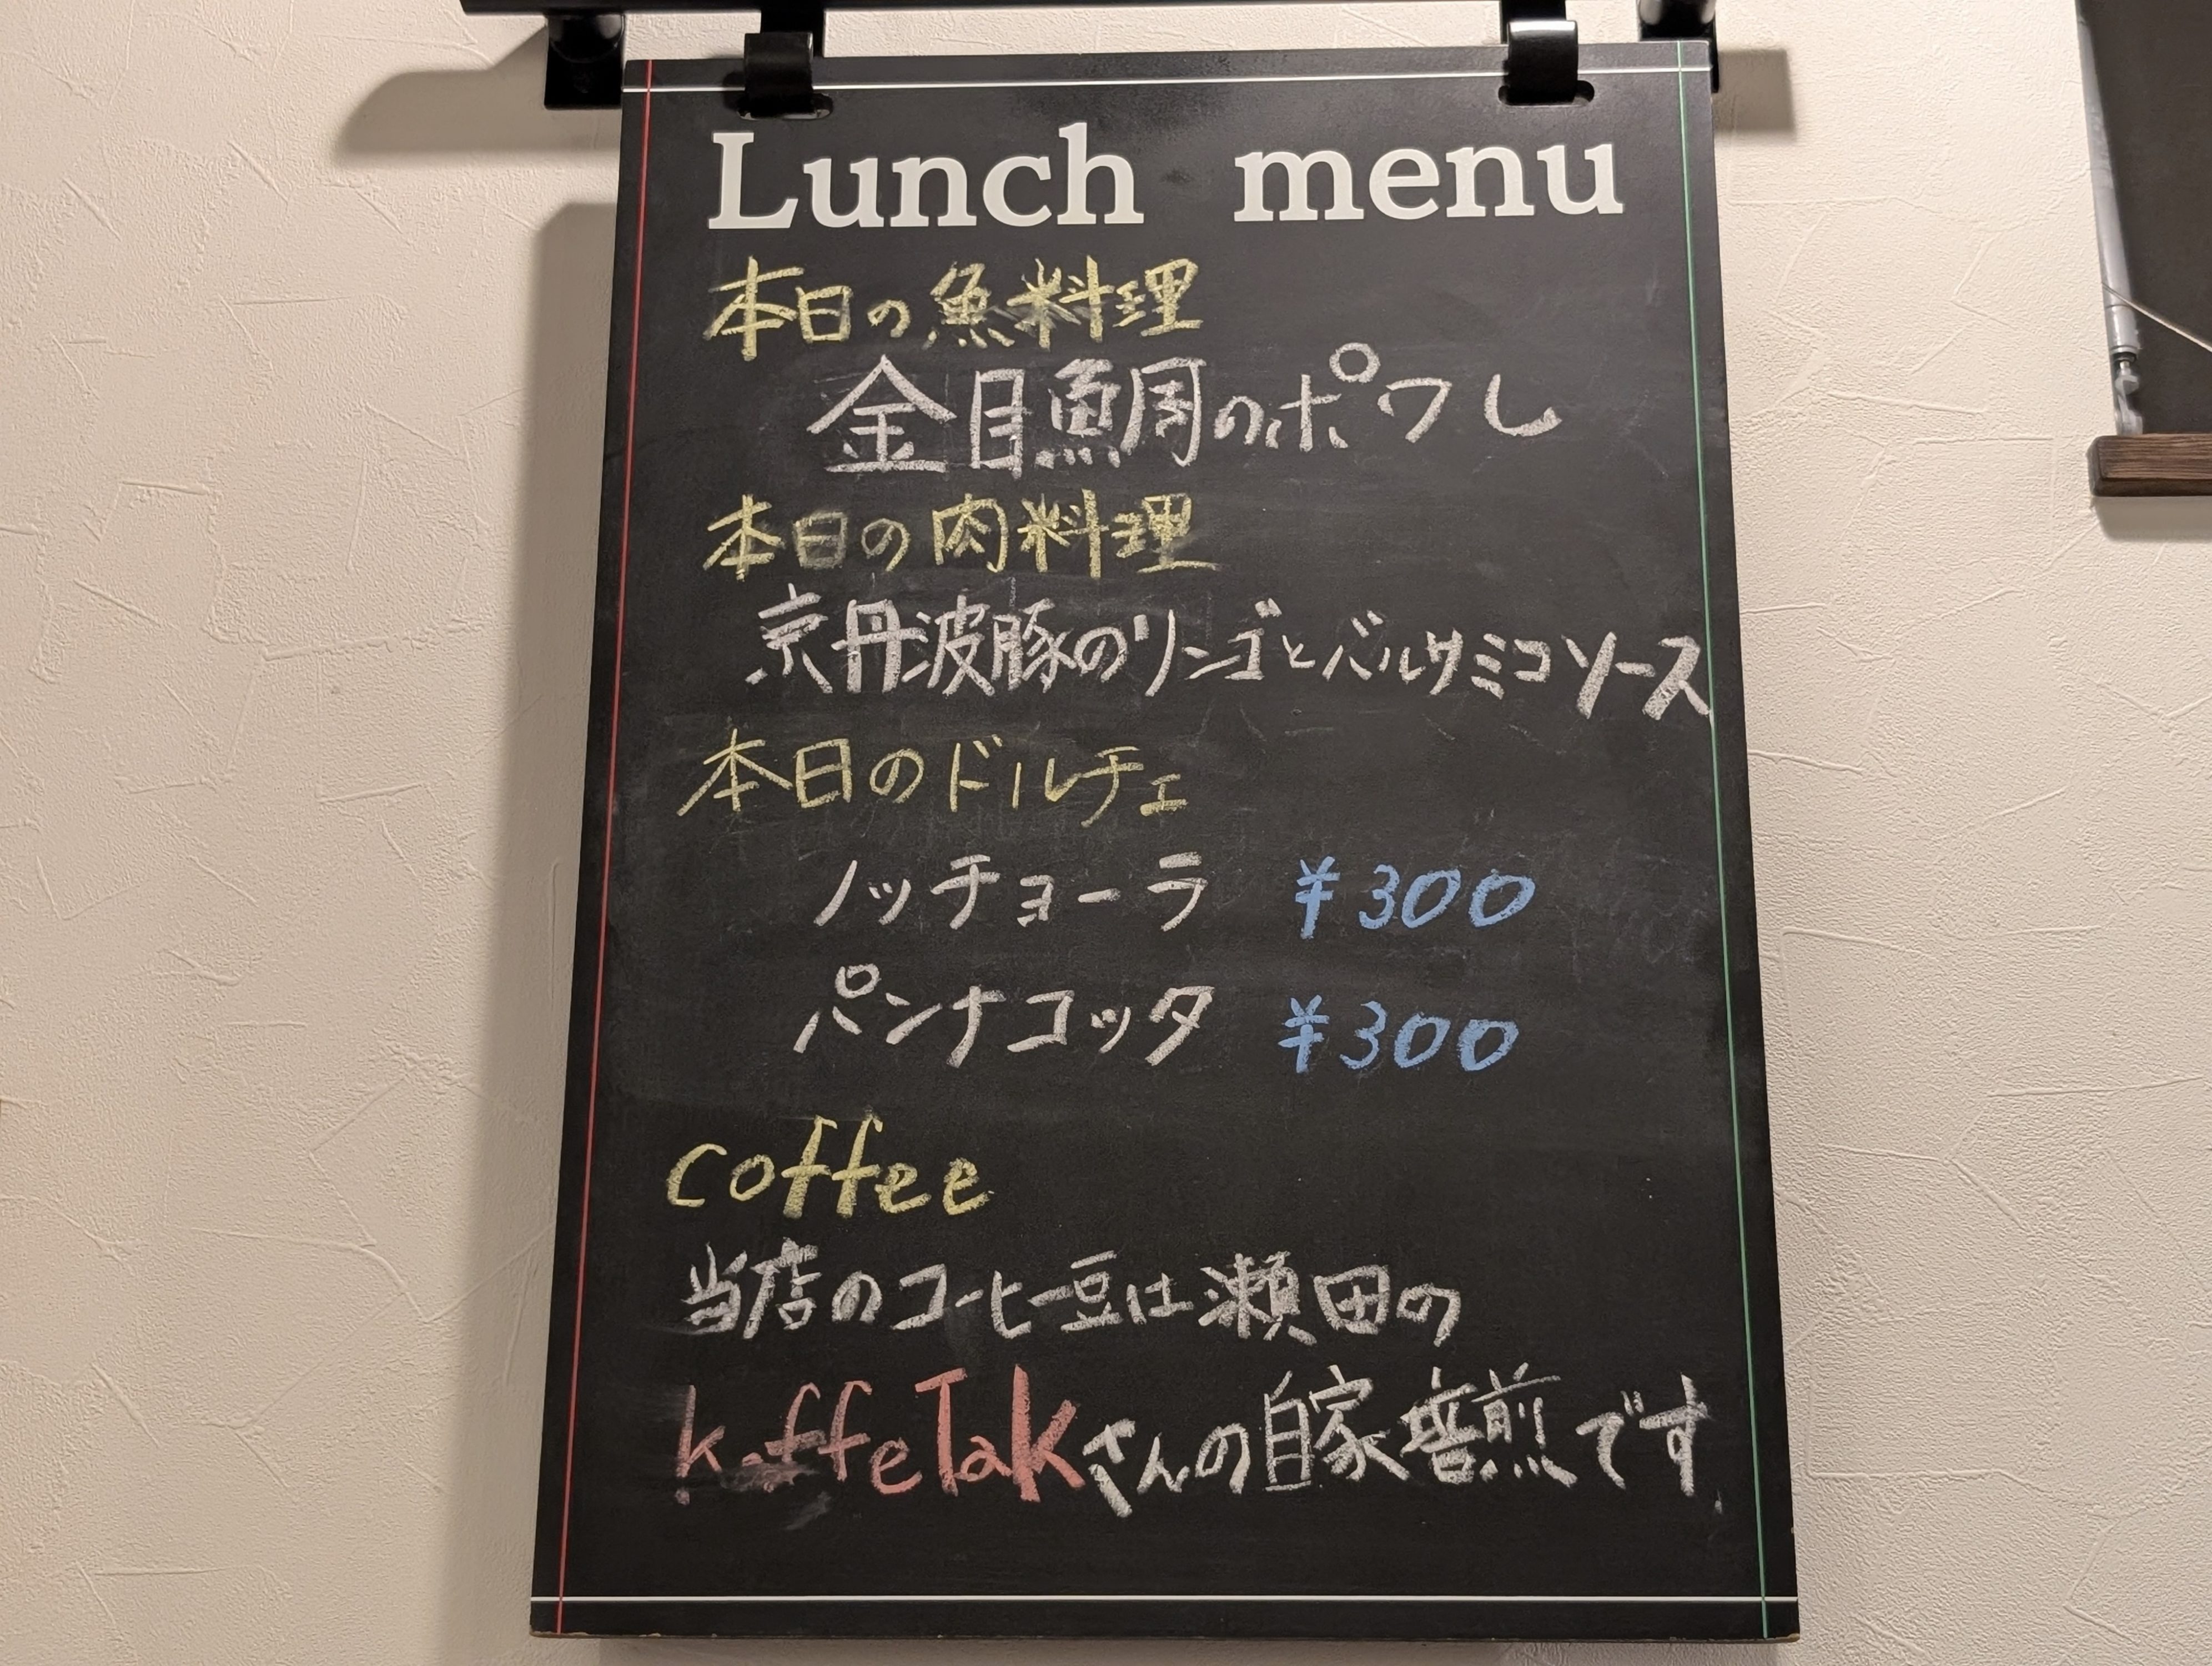 Lunch menu
本日の魚料理
金目鯛のポワレ
本日の肉料理
京丹波豚のリンゴとバルサミコソース
本日のドルチェ
ノッチョーラ ¥300
パンナコッタ ¥300
coffee
当店のコーヒー豆は瀬田の
kaffeTakさんの自家焙煎です